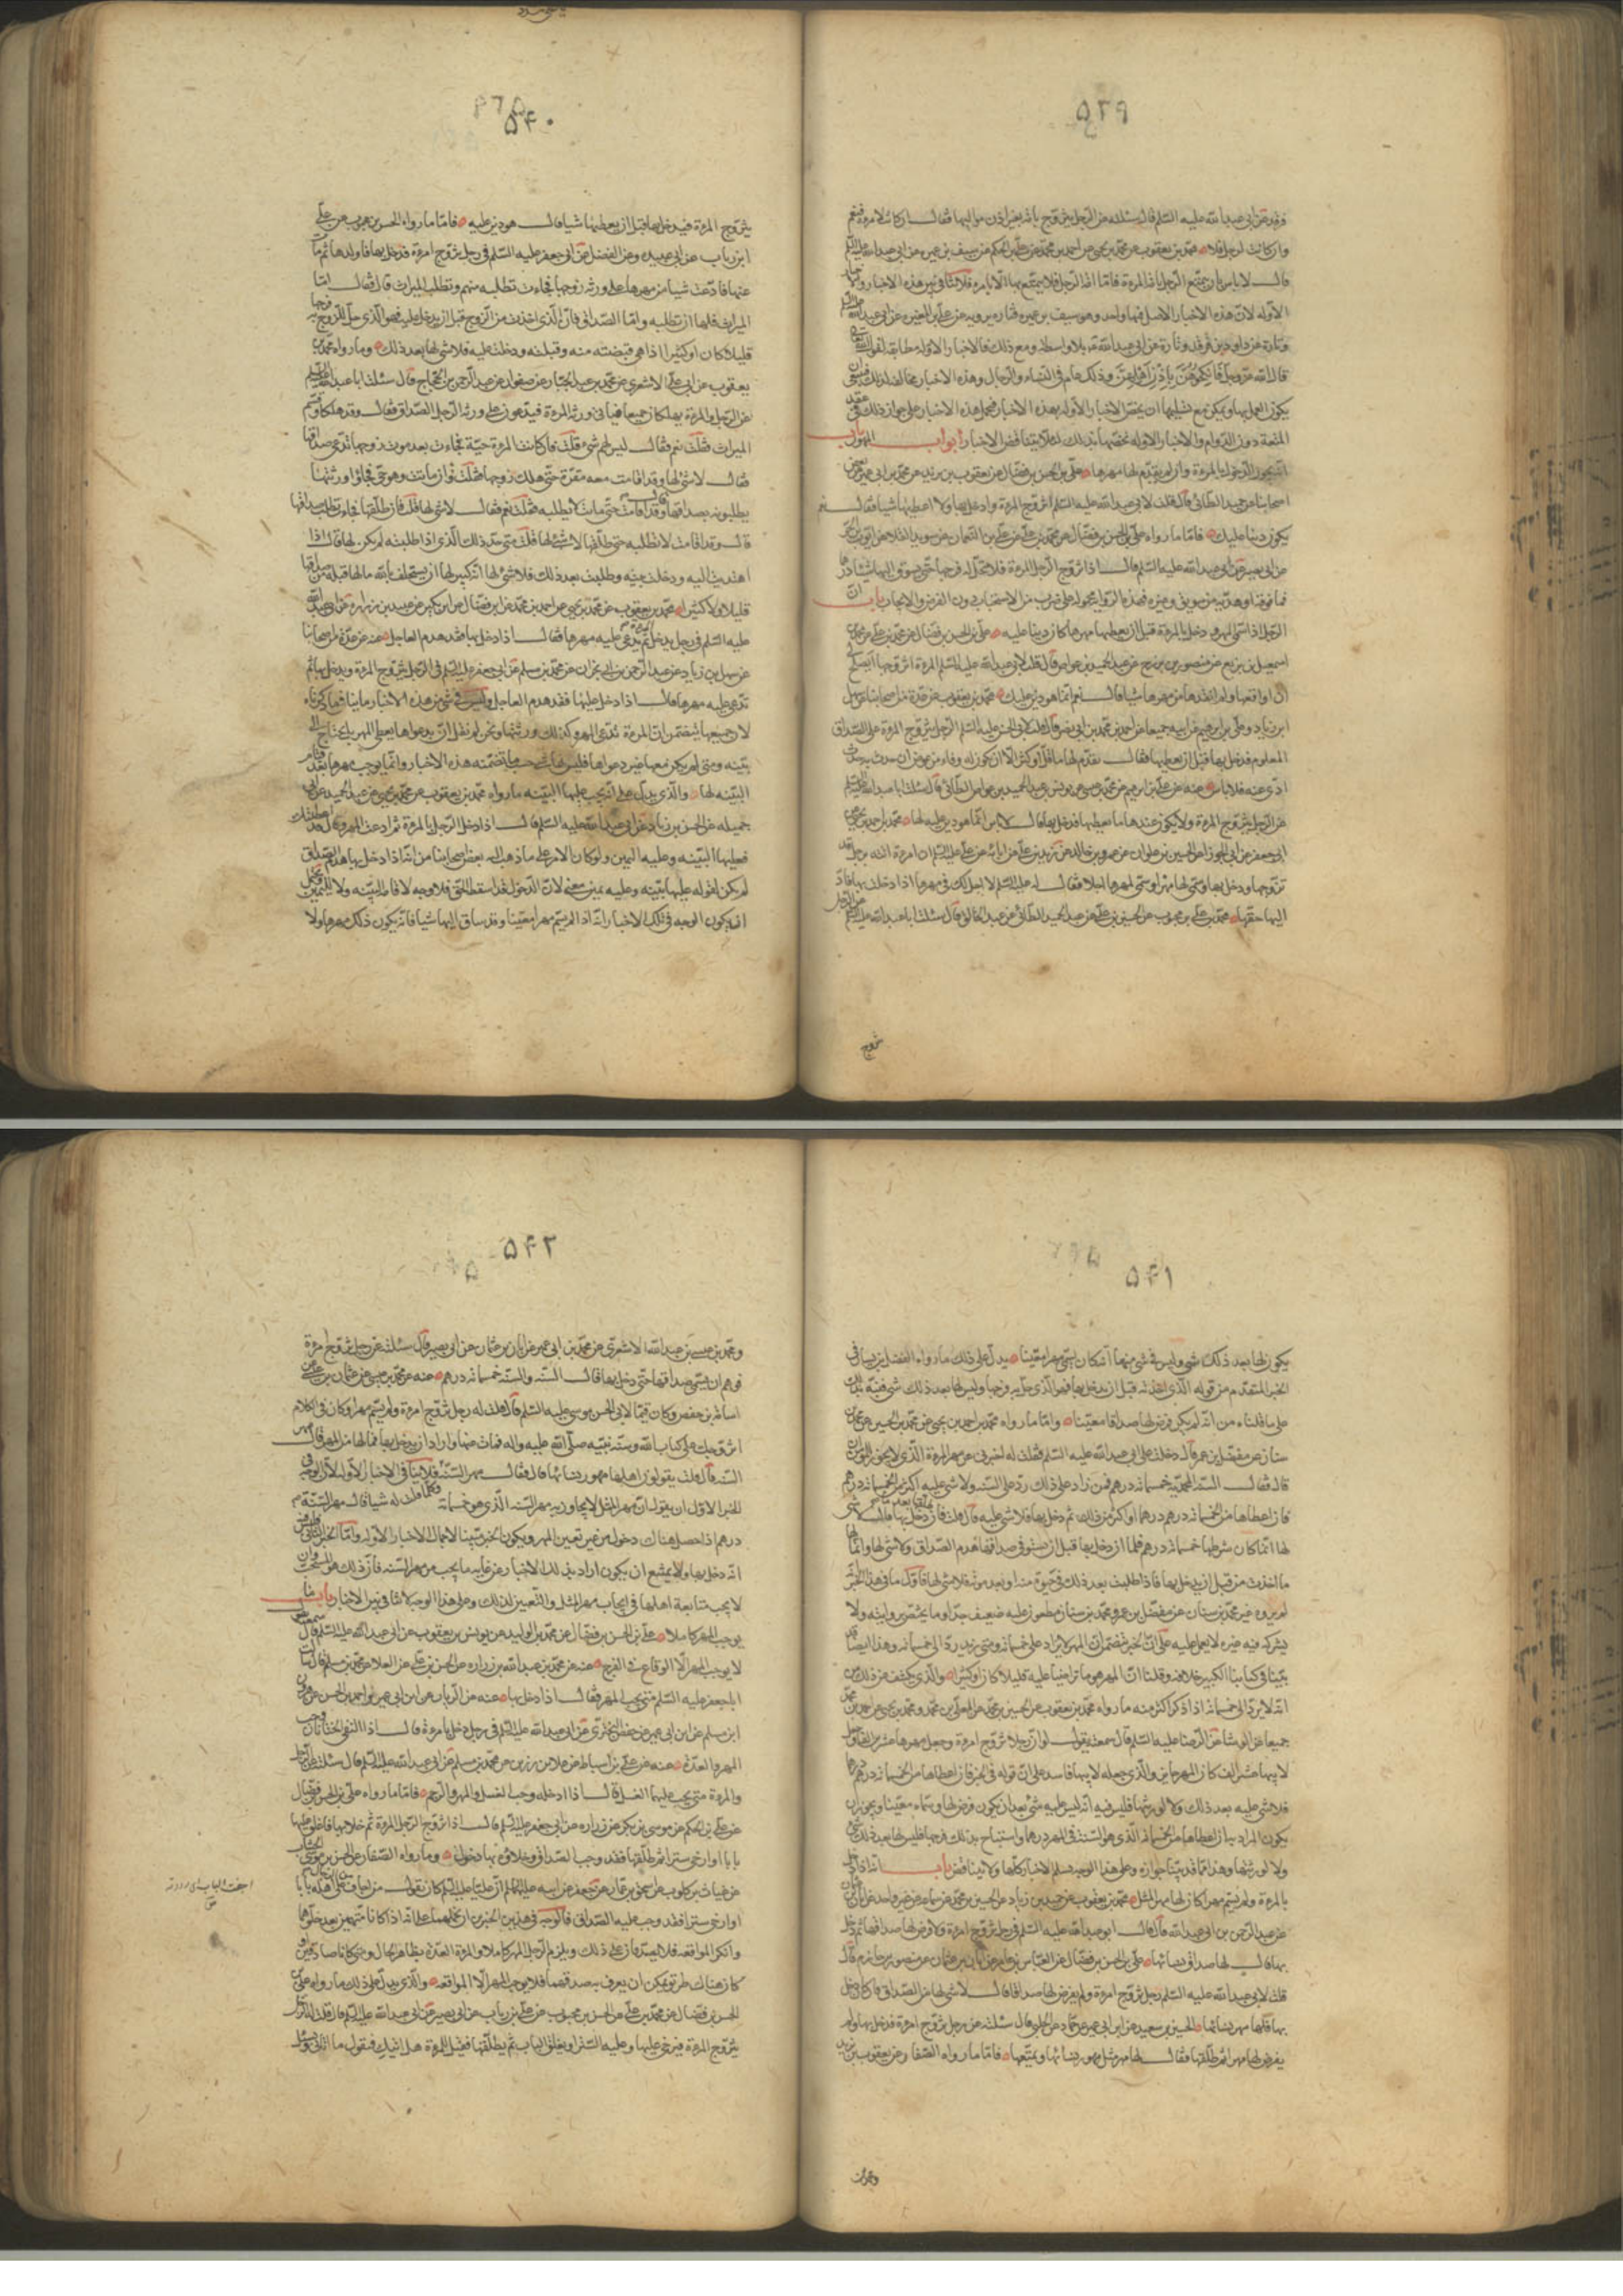 ۵۳۹
فرقد عن ابی عبد الله علیه السلم قال سئلته عن الرجل یتزوج بامة بغیر اذن موالیها فقال ان کانت لامرءة فنعم
وان کانت لرجل فلا محمد بن یعقوب عن محمد بن یحیی عن احمد بن محمد عن علی بن الحکم عن سیف بن عمیرة عن ابی عبد الله علیه السلم
قال لا باس بان یتمتع الرجل بامة المرءة فاما امة الرجل فلا یتمتع بها الا بامره فلا تنافی بین هذه الاخبار
الاوله لان هذه الاخبار الاصل فیها واحد وهو سیف بن عمیرة فتارة یرویه عن علی بن المغیره عن ابی عبد الله
وتارة عن داود بن فرقد وتارة عن ابی عبد الله بلا واسطه ومع ذلک فالاخبار الاوله مطابقه لقوله
قال الله عز وجل فانکحوهن باذن اهلهن وذلک عام فی النساء والرجال وهذه الاخبار مخالفة لذلک فینبغی
یکون العمل بها ویمکن مع تسلیمها ان یخص الاخبار الاوله بهذه الاخبار فیحمل هذه الاخبار علی جواز ذلک فی عقد
المتعة دون الدوام والاخبار الاوله نخصها بذلک لئلا یتناقض الاخبار ابواب المهور باب
انه یجوز الدخول بالمرءة وان لم یقدم لها مهرها علی بن الحسن بن فضال عن یعقوب بن یزید عن محمد بن ابی عمیر عن بعض
اصحابنا عن عبد الحمید الطائی قال قلت لابی عبد الله علیه السلم اتزوج المرءة وادخل بها ولا اعطیها شیا فقال نعم
یکون دینا علیک فاما ما رواه علی بن الحسن بن فضال عن محمد بن علی عن علی بن النعمان عن سوید القلا عن ایوب بن الحر
عن ابی بصیر عن ابی عبد الله علیه السلم قال اذا تزوج الرجل المرءة فلا یحل له فرجها حتی یسوق الیها شیا درهما
فما فوقه او هدیة من سویق او غیره فهذه الروایة محمولة علی ضرب من الاستحباب دون الفرض والایجاب باب ان
الرجل اذا سمی المهر ودخل بالمرءة قبل ان یعطیها مهرها کان دینا علیه علی بن الحسن بن فضال عن محمد بن علی عن محمد بن
اسمعیل بن بزیع عن منصور بن بزرج عن عبد الحمید بن عواض قال قلت لابی عبد الله علیه السلم المرءة اتزوجها ایصلح لی
ان اواقعها ولم انقدها من مهرها شیا قال نعم انما هو دین علیک محمد بن یعقوب عن عدة من اصحابنا عن سهل
ابن زیاد وعلی بن ابرهیم عن ابیه جمیعا عن احمد بن محمد بن ابی نصر قال قلت لابی الحسن علیه السلم الرجل یتزوج المرءة علی الصداق
المعلوم فیدخل بها قبل ان یعطیها فقال یقدم لها ما قل او کثر الا ان یکون له وفاء من عرض ان حدث به حدث
ادی عنه فلا باس عنه عن علی بن ابرهیم عن محمد بن عیسی عن یونس عن عبد الحمید بن عواض الطائی قال سئلت ابا عبد الله علیه السلم
عن الرجل یتزوج المرءة ولا یکون عنده ما یعطیها فیدخل بها قال لا باس انما هو دین علیه لها محمد بن احمد بن یحیی
عن ابی جعفر عن ابی الجوزاء عن الحسین بن علوان عن عمرو بن خالد عن زید بن علی عن ابائه عن علی علیه السلم ان امرءة اتته برجل قد
تزوجها ودخل بها وسمی لها مهرا وسمی لمهرها اجلا فقال له علیه السلم لا اجل لک فی مهرها اذا دخلت بها فاد
الیها حقها محمد بن علی بن محبوب عن الحسین بن علی عن عبد الحمید الطائی عن عبد الخالق قال سئلت ابا عبد الله علیه السلم عن الرجل
تزوج
۵۴۰
یتزوج المرءة فیدخل بها قبل ان یعطیها شیا قال هو دین علیه فاما ما رواه الحسن بن محبوب عن علی
ابن رئاب عن ابی عبیده وعن الفضیل عن ابی جعفر علیه السلم فی رجل تزوج امرءة فدخل بها فاولدها ثم مات
عنها فادعت شیا من مهرها علی ورثة زوجها فجاءت تطلبه منهم وتطلب المیراث قال فقال اما
المیراث فلها ان تطلبه واما الصداق فان الذی اخذت من الزوج قبل ان یدخل علیها فهو الذی حل للزوج به فرجها
قلیلا کان او کثیرا اذا هی قبضته منه وقبلته ودخلت علیه فلا شی لها بعد ذلک وما رواه محمد بن
یعقوب عن ابی علی الاشعری عن محمد بن عبد الجبار عن صفوان عن عبد الرحمن بن الحجاج قال سئلت ابا عبد الله علیه السلم
عن الرجل والمرءة یهلکان جمیعا فیاتی ورثة المرءة فیدعون علی ورثة الرجل الصداق فقال وقد هلکا وقسم
المیراث فقلت نعم فقال لیس لهم شی قلت فان کانت المرءة حیة فجاءت بعد موت زوجها تدعی صداقها
فقال لا شی لها وقد اقامت معه مقرة حتی هلک زوجها فقلت فان ماتت وهو حی فجاؤا ورثتها
یطلبونه بصداقها فقال وقد اقامت حتی ماتت لا تطلبه فقلت نعم فقال لا شی لها قلت فان طلقها فجاءت تطلب صداقها
قال وقد اقامت لا تطلبه حتی طلقها لا شی لها قلت متی حد ذلک الذی اذا طلبته لم یکن لها قال اذا
اهدیت الیه ودخلت بیته وطلبت بعد ذلک فلا شی لها انه کثیر لها ان یستحلف بالله ما لها قبله من صداقها
قلیل ولا کثیر محمد بن یعقوب عن محمد بن یحیی عن احمد بن محمد عن ابن فضال عن ابن بکیر عن عبید بن زرارة عن ابی عبد الله
علیه السلم فی رجل یدخل ثم تدعی علیه مهرها فقال اذا دخل بها فقد هدم العاجل عنه عن عدة من اصحابنا
عن سهل بن زیاد عن عبد الرحمن بن ابی نجران عن محمد بن مسلم عن ابی جعفر علیه السلم فی الرجل یتزوج المرءة ویدخل بها ثم
تدعی علیه مهرها قال اذا دخل علیها فقد هدم العاجل ولیس فی شی من هذه الاخبار ما ینافی ما ذکرناه
لان جمیعها یتضمن ان المرءة تدعی المهر وکذلک ورثتها ونحن لم نقل ان بدعواها یعطی المهر بل یحتاج الی
بینه ومتی لم یکن معها غیر دعواها فلیس لها شی حسب ما تضمنته هذه الاخبار وانما یوجب مهرها بعد قیام
البینه لها والذی یدل علی انه یجب علیها البینه ما رواه محمد بن یعقوب عن محمد بن یحیی عن عبد الحمید عن ابی
جمیله عن الحسن بن زیاد عن ابی عبد الله علیه السلم قال اذا دخل الرجل بالمرءة ثم ادعت المهر وقال قد اعطیتک
فعلیها البینه وعلیه الیمین ولو کان الامر علی ما ذهب الیه بعض اصحابنا من انه اذا دخل بها هدم الصداق
لم یکن لقوله علیها بینه وعلیه یمین معنی لان الدخول قد اسقط الحق فلا وجه لاقامة البینه ولا للیمین ویحتمل
ان یکون الوجه فی تلک الاخبار انه اذا لم یسم مهرا معینا وقد ساق الیها شیا فانه یکون ذلک مهرها ولا
۵۴۱
یکون لها بعد ذلک شی ولیس فی شی منها انه کان سمی مهرا معینا یدل علی ذلک ما رواه الفضیل بن یسار فی
الخبر المتقدم من قوله الذی اخذته قبل ان یدخل بها فهو الذی حل به فرجها ولیس لها بعد ذلک شی
علی ما قلناه من انه لم یکن فرض لها صداقا معینا واما ما رواه محمد بن احمد بن یحیی عن محمد بن الحسین عن محمد بن
سنان عن مفضل بن عمر قال دخلت علی ابی عبد الله علیه السلم فقلت له اخبرنی عن مهر المرءة الذی لا یجوز للمؤمن ان
قال فقال السنة المحمدیة خمسمائة درهم فمن زاد علی ذلک رد علی السنة ولا شی علیه اکثر من الخمسمائة درهم
فان اعطاها من الخمسمائة درهم درهما او اکثر من ذلک ثم دخل بها فلا شی علیه قال قلت فان طلقها بعد ما دخل بها قال لا شی
لها انما کان شرطها خمسمائة درهم فلما ان دخل بها قبل ان تستوفی صداقها هدم الصداق ولا شی لها وانما لها
ما اخذت من قبل ان یدخل بها فاذا طلبت بعد ذلک فی حیوة منه او بعد موته فلا شی لها فاول ما فی هذا الخبر انه
لم یروه غیر محمد بن سنان عن مفضل بن عمر ومحمد بن سنان مطعون علیه ضعیف جدا وما یختص بروایته ولا
یشرکه فیه غیره لا یعمل علیه علی ان الخبر تضمن ان المهر لا یزاد علی خمسمائة ومتی زید رد الی خمسمائة وهذا ایضا قد
بینا فی کتابنا الکبیر خلافه وقلنا ان المهر هو ما تراضیا علیه قلیلا کان او کثیرا والذی یکشف عن ذلک من
انه لا یرد الی خمسمائة اذا ذکر اکثر منه ما رواه محمد بن یعقوب عن الحسین بن محمد عن المعلی بن محمد ومحمد بن یحیی عن احمد بن محمد
جمیعا عن الوشا عن الرضا علیه السلم قال سمعته یقول لو ان رجلا تزوج امرءة وجعل مهرها عشرین الفا وجعل
لابیها عشرة الف کان المهر جائزا والذی جعله لابیها فاسد علی ان قوله فی الخبر فان اعطاها من الخمسمائة درهم درهما
فلا شی علیه بعد ذلک ولا لورثتها فلیس فیه انه لیس علیه شی بعد ان یکون فرض لها وسماه معینا ویجوز ان
یکون المراد بها ان اعطاها من الخمسمائة الذی هو السنة فی المهر درهما واستباح بذلک فرجها فلیس لها بعد ذلک شی
ولا لورثتها وهذا مما قد بینا جوازه وعلی هذا الوجه تسلم الاخبار کلها ولا تتناقض باب انه اذا دخل
بالمرءة ولم یسم مهرا کان لها مهر المثل محمد بن یعقوب عن حمید بن زیاد عن الحسن بن محمد عن غیر واحد عن ابان
عن عبد الرحمن بن ابی عبد الله قال قال ابو عبد الله علیه السلم فی رجل تزوج امرءة ولم یفرض لها صداقها ثم دخل
بها قال لها صداق نسائها علی بن الحسن بن فضال عن العباس بن عامر عن ابان بن عثمان عن منصور بن حازم قال
قلت لابی عبد الله علیه السلم رجل تزوج امرءة ولم یفرض لها صداقا قال لا شی لها من الصداق فان کان دخل
بها فلها مهر نسائها الحسین بن سعید عن ابن ابی عمیر عن حماد عن الحلبی قال سئلته عن رجل تزوج امرءة فدخل بها ولم
یفرض لها مهرا ثم طلقها فقال لها مهر مثل مهور نسائها ویمتعها فاما ما رواه الصفار عن یعقوب بن یزید
۵۴۲
ومحمد بن عیسی بن عبد الله الاشعری عن محمد بن ابی عمیر عن ابان بن عثمان عن ابی بصیر قال سئلته عن رجل تزوج امرءة
فوهم ان یسمی صداقها حتی دخل بها قال السنة والسنة خمسمائة درهم عنه عن محمد بن عیسی عن عثمان بن عیسی عن
اسامة بن حفص وکان قیما لابی الحسن موسی علیه السلم قال قلت له رجل تزوج امرءة ولم یسم مهرا وکان فی الکلام
اتزوجک علی کتاب الله وسنة نبیه صلی الله علیه واله فمات عنها او اراد ان یدخل بها فما لها من المهر قال مهر
السنة قال قلت یقولون اهلها مهور نسائها قال فقال مهر السنة وکلما قلت له شیا قال مهر السنة فلا ینافی الاخبار الاوله لان الوجه فی
الخبر الاول ان یقول ان مهر المثل لا یجاوز به مهر السنة الذی هو خمسمائة
درهم اذا حصل هناک دخول من غیر تعین المهر ویکون الخبر مبینا لاجمال الاخبار الاوله واما الخبر الثانی
انه دخل بها ولا یمتنع ان یکون اراد بذلک الاخبار عن غایة ما یجب من مهر السنة فان ذلک هو المستحب وان
لا یجب متابعة اهلها فی ایجاب مهر المثل والتعیین لذلک وعلی هذا الوجه لا تنافی بین الاخبار باب ما
یوجب المهر کاملا علی بن الحسن بن فضال عن محمد بن الولید عن یونس بن یعقوب عن ابی عبد الله علیه السلم قال سمعته یقول
لا یوجب المهر الا الوقاع فی الفرج عنه عن محمد بن عبد الله بن زراره عن الحسن بن علی عن العلا عن محمد بن مسلم قال سئلت
ابا جعفر علیه السلم متی یجب المهر فقال اذا دخل بها عنه عن الزیات عن ابن ابی عمیر واحمد بن الحسن عن هرون
ابن مسلم عن ابن ابی عمیر عن حفص البختری عن ابی عبد الله علیه السلم فی رجل دخل بامرءة قال اذا التقی الختانان وجب
المهر والعدة عنه عن علی بن اسباط عن علا بن رزین عن محمد بن مسلم عن ابی عبد الله علیه السلم قال سئلته عن الرجل
والمرءة متی یجب علیهما الغسل قال اذا ادخله وجب الغسل والمهر والرجم فاما ما رواه علی بن الحسن بن فضال
عن علی بن الحکم عن موسی بن بکر عن زراره عن ابی جعفر علیه السلم قال اذا تزوج الرجل المرءة ثم خلا بها فاغلق علیها
بابا او ارخی سترا ثم طلقها فقد وجب الصداق وخلاؤه بها دخول وما رواه الصفار عن الحسن بن موسی الخشاب
عن غیاث بن کلوب عن اسحق بن عمار عن جعفر عن ابیه علیهما السلم ان علیا علیه السلم کان یقول من اجاف من الرجال علی اهله بابا
او ارخی سترا فقد وجب علیه الصداق فالوجه فی هذین الخبرین ان نحملهما علی انه اذا کانا متهمین بعد خلوتهما
وانکرا المواقعه فلا یصدقان علی ذلک ویلزم الرجل المهر کاملا والمرءة العدة بظاهر الحال ومتی کانا صادقین او
کان هناک طریق یمکن ان یعرف به صدقهما فلا یوجب المهر الا المواقعه والذی یدل علی ذلک ما رواه علی بن
الحسن بن فضال عن محمد بن علی عن الحسن بن محبوب عن علی بن رئاب عن ابی بصیر عن ابی عبد الله علیه السلم قال قلت له الرجل
یتزوج المرءة فیرخی علیها وعلیه الستر او یغلق الباب ثم یطلقها فقیل للمرءة هل اتیک فتقول ما اتانی ویسئل
اجفت الباب ای رددته